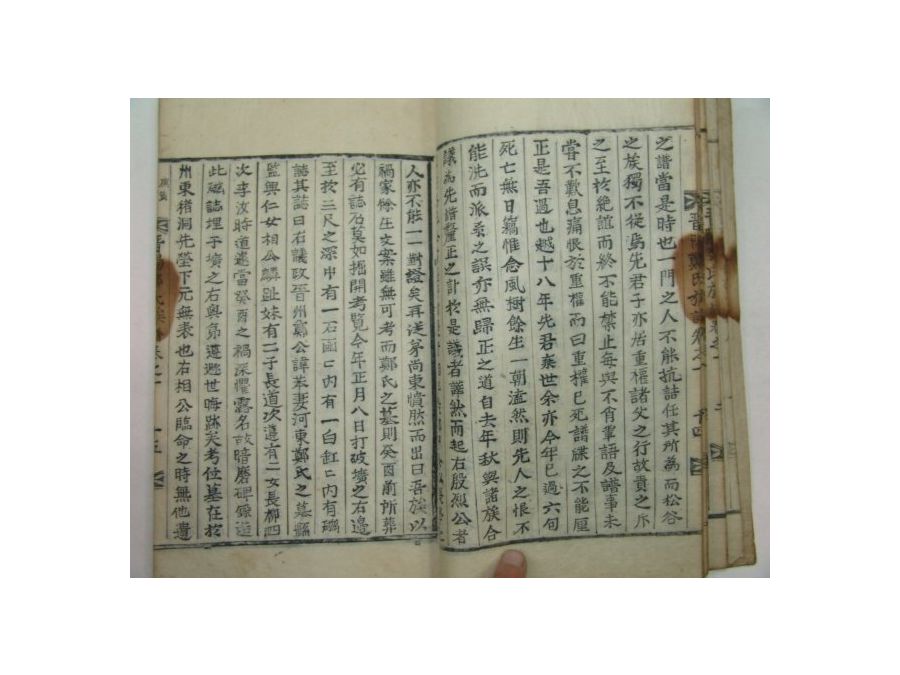 之譜當是時也一門之人不能抗語任其所為而松谷
之族獨不從焉先君子亦居重權諸父之行故貴之斥
之至於絶誼而終不能禁止每與不肖輩語及譜事未
嘗不歎息痛恨於重權而曰重權已死譜牒之不能厘
正是吾過也越十八年先君棄世余亦今年已過六旬
死亡無日竊惟念風樹餘生一朝溘然則先人之恨不
能洗而派系之誤亦無歸正之道自去年秋與諸族合
議為先譜釐正之計於是議者譁然而起右股烈公者
人亦不能一一對證矣再從弟尚東憤然而出曰吾族以
禍家餘生文案雖無可考而鄭氏之墓則癸酉前所葬
必有誌石莫如掘開考覽今年正月八日打破壙之右邊
至於三尺之深中有一石函匚內有一白缸匚內有磁
誌其誌曰右議政晉州鄭公諱苯妻河東鄭氏之墓縣
監興仁女相公麟趾妹有二子長道次遵有二女長都四
次李汝時道遭當癸酉之禍深懼露名故暗磨碑錄造
此磁誌埋于壙之右與弟遵逃世晦跡矣考位墓在於
州東猪洞先塋下元無表也右相公臨命之時無他遺